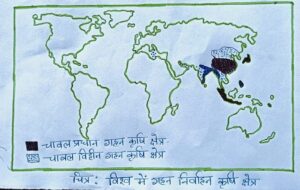 चावल प्रधान गहन कृषि क्षेत्र
चावल विहीन गहन कृषि क्षेत्र
चित्र : विश्व में गहन निर्वाहन कृषि क्षेत्र